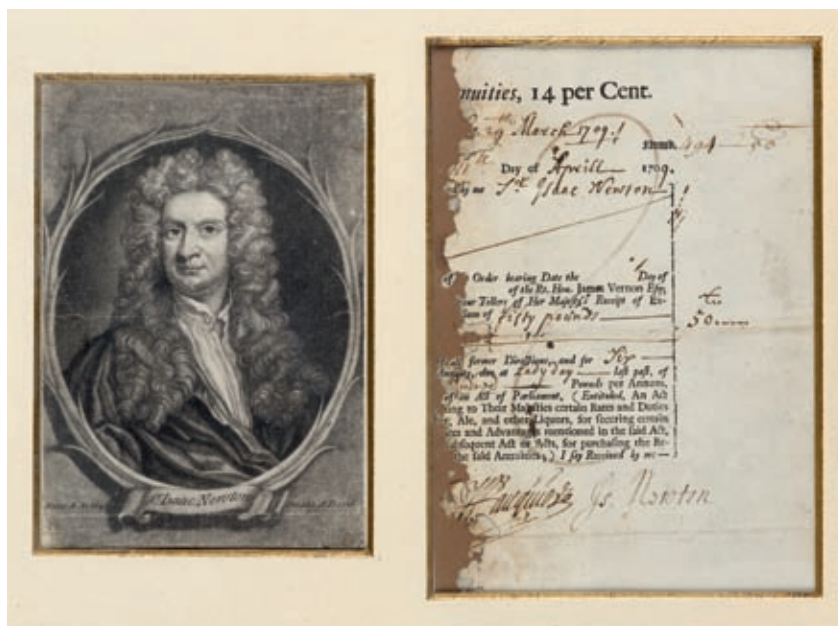 Sr. Isaac Newton
nuities, 14 per Cent.
29th March 1709
Numb. 491 50
Day of Aprill 1709.
Sr. Isaac Newton
Order bearing Date the Day of
of the Rt. Hon. James Vernon Esq;
Tellers of Her Majesty's Receipt of Ex-
Sum of fifty pounds
50
former Directions, and for
due at Lady day last past, of
Pounds per Annum,
of an Act of Parliament, (Entituled, An Act
ing to Their Majesties certain Rates and Duties
Ale, and other Liquors, for securing certain
and Advantages mentioned in the said Act,
subsequent Act or Acts, for purchasing the Re-
the said Annuities;) I say Received by me
Is. Newton